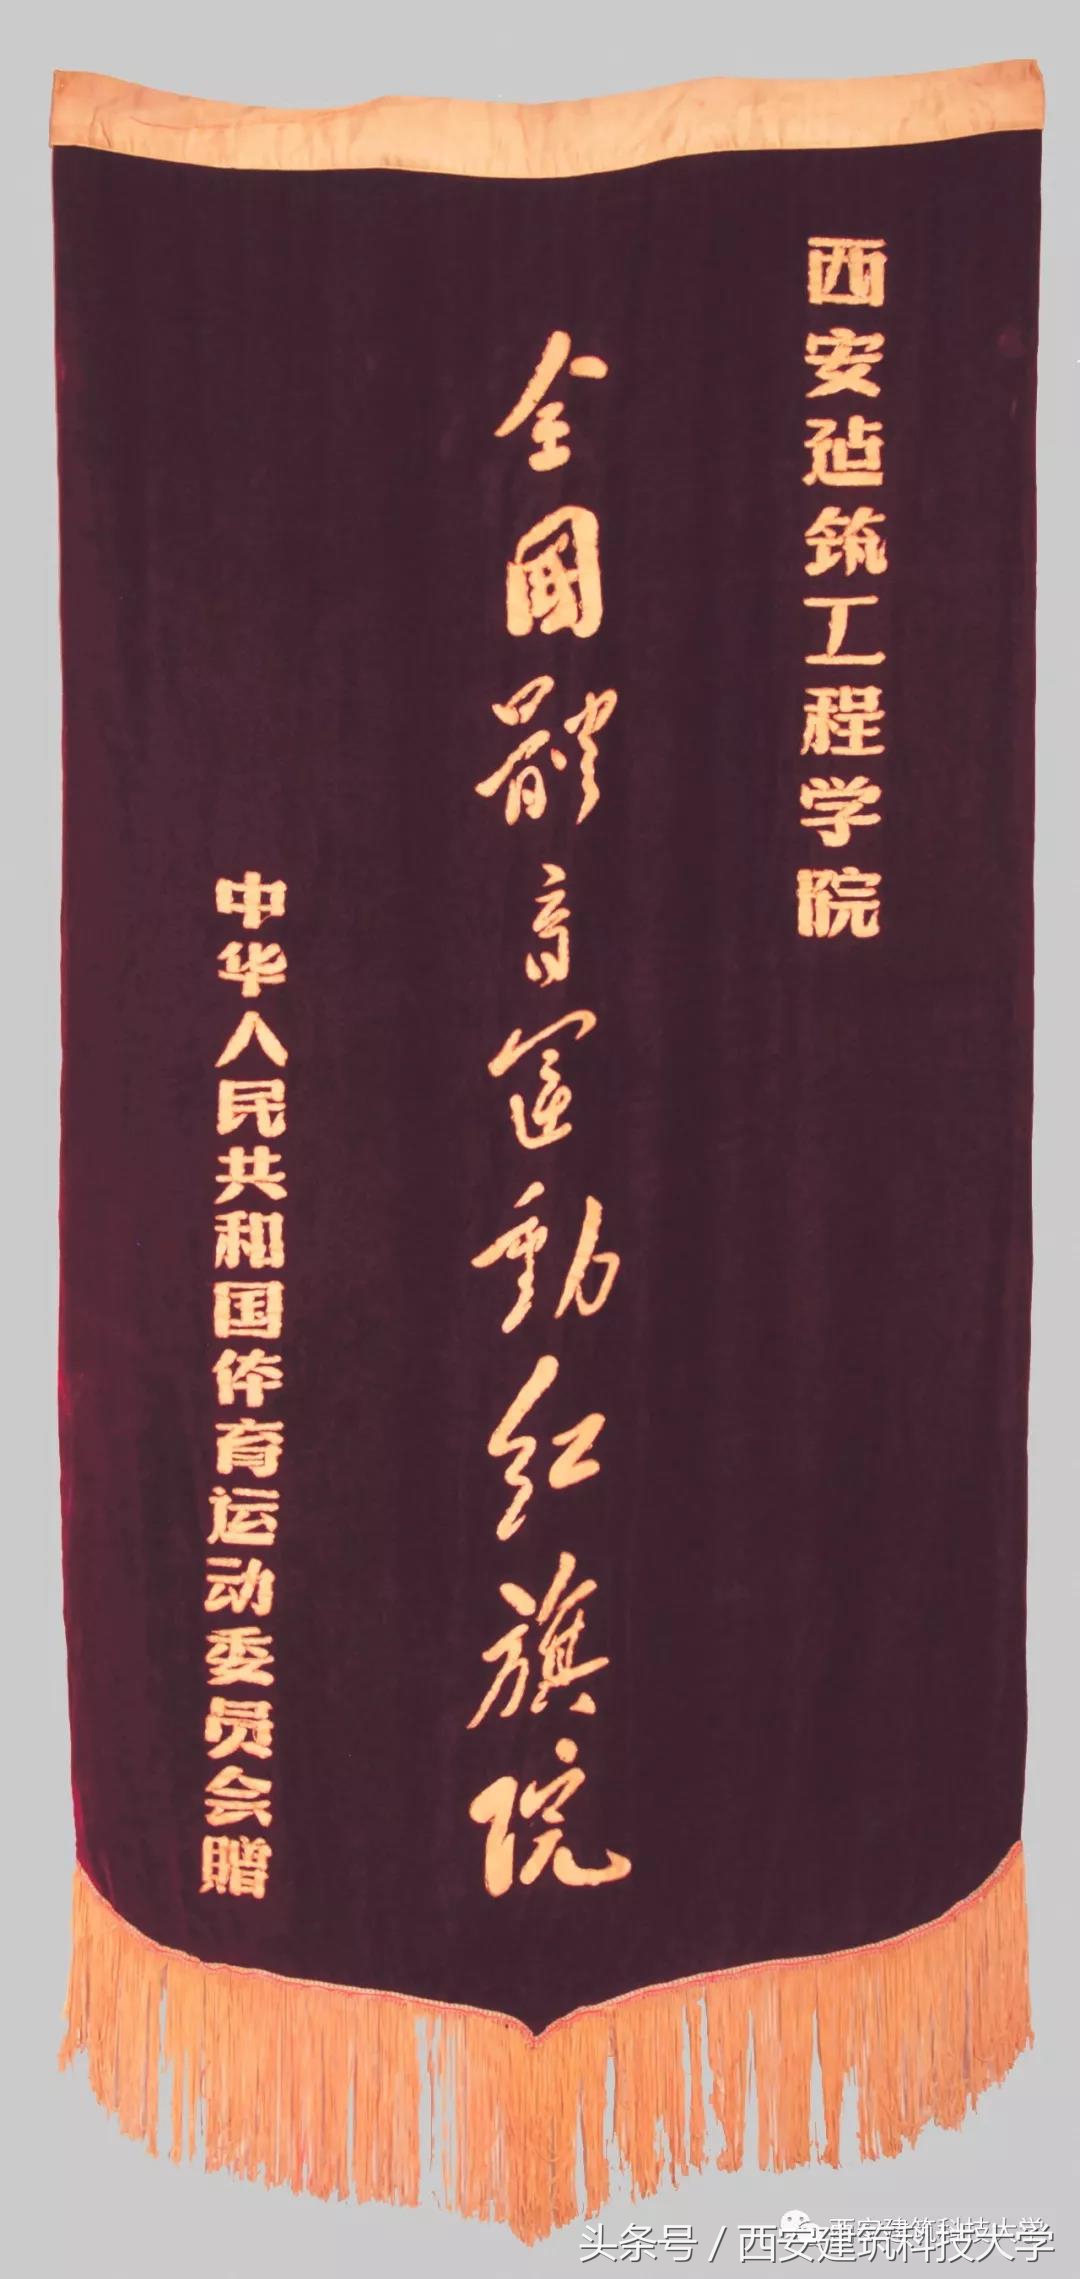 西安建筑工程学院
全國體育運動红旗院
中华人民共和国体育运动委员会贈
西安建筑科技大学
头条号 / 西安建筑科技大学